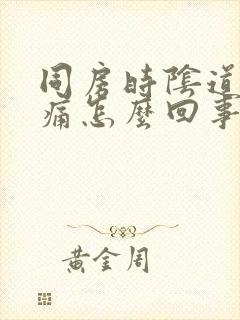 同房時陰道
痛怎麼回事
黃金周